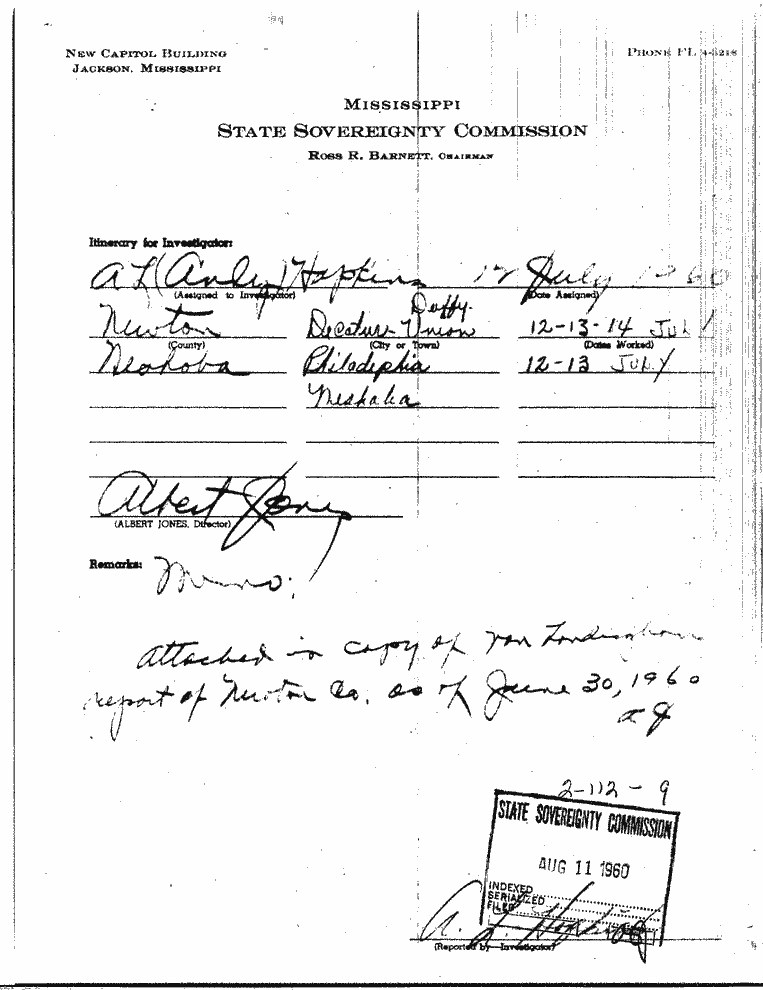 NEW CAPITOL BUILDING
JACKSON, MISSISSIPPI
PHONE FL 4-3218
MISSISSIPPI
STATE SOVEREIGNTY COMMISSION
ROSS R. BARNETT, CHAIRMAN
Itinerary for Investigator:
AL (Andy) Hopkins 12 July 1960
(Assigned to Investigator) (Date Assigned)
Duffy
Newton Decature Union 12-13-14 July
(County) (City or Town) (Dates Worked)
Neshoba Philadephia 12-13 July
Neshaba
Albert Jones
(ALBERT JONES, Director)
Remarks: Memo:
attached is copy of Van Landingham
report of Newton Co. as of June 30, 1960
a J
2-112-9
STATE SOVEREIGNTY COMMISSION
AUG 11 1960
INDEXED
SERIALIZED
FILED
A. L. Hopkins
(Reported by Investigator)